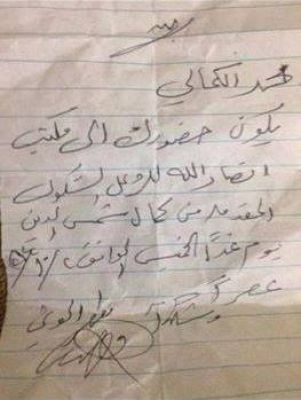 محمد الكمالي
يكون حضورك الى مكتب
انصار الله للرد على الشكوى
المقدمة من كمال شمس الدين
يوم غداً الخميس الموافق
عصراً
وشكراً